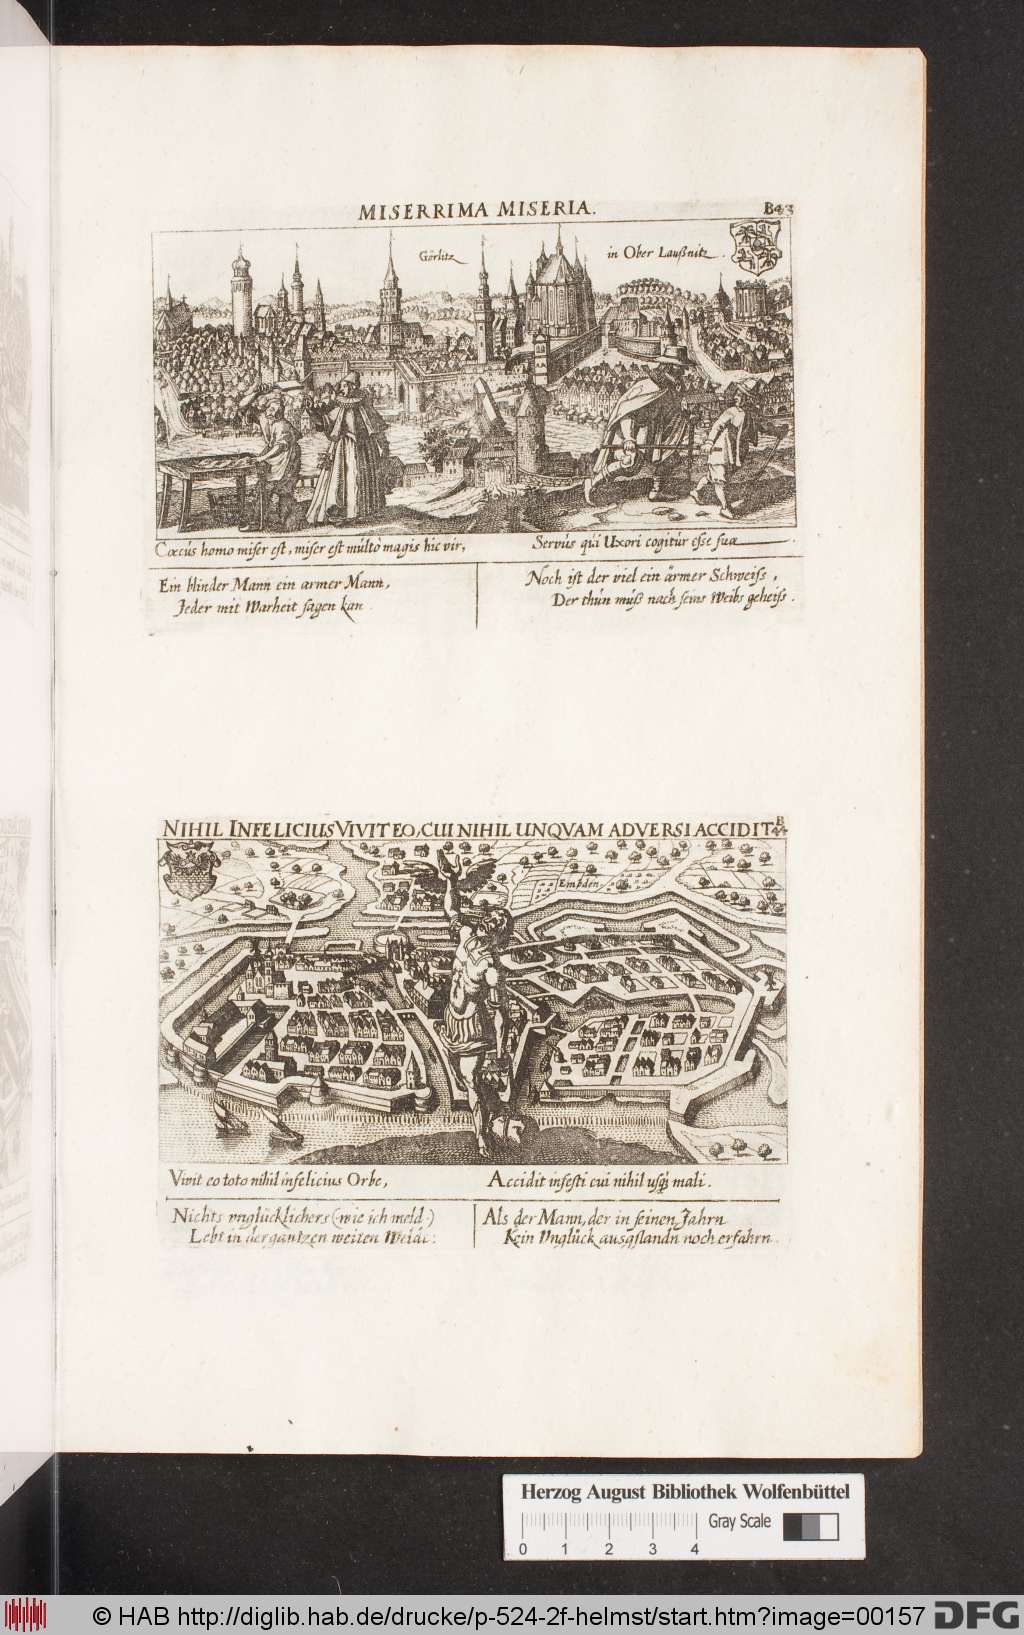 MISERRIMA MISERIA.
B43
Görlitz
in Ober Laußnitz.
Cœcús homo miser est, miser est múltò magis hic vir,
Servús qúi Uxori cogitúr esse suæ.
Ein blinder Mann ein armer Mann,
Jeder mit Warheit sagen kan.
Noch ist der viel ein ärmer Schweiss,
Der thún múß nach seins Weibs geheiss.
NIHIL INFELICIUS VIVIT EO, CUI NIHIL UNQVAM ADVERSI ACCIDIT
B44
Embden
Vivit eo toto nihil infelicius Orbe,
Accidit infesti cui nihil usq; mali.
Nichts vnglücklichers (wie ich meld)
Lebt in der gantzen weiten Weldt:
Als der Mann, der in seinen Jahrn
Kein Vnglück ausgstandn noch erfahrn.
Herzog August Bibliothek Wolfenbüttel
Gray Scale
0 1 2 3 4
© HAB http://diglib.hab.de/drucke/p-524-2f-helmst/start.htm?image=00157
DFG